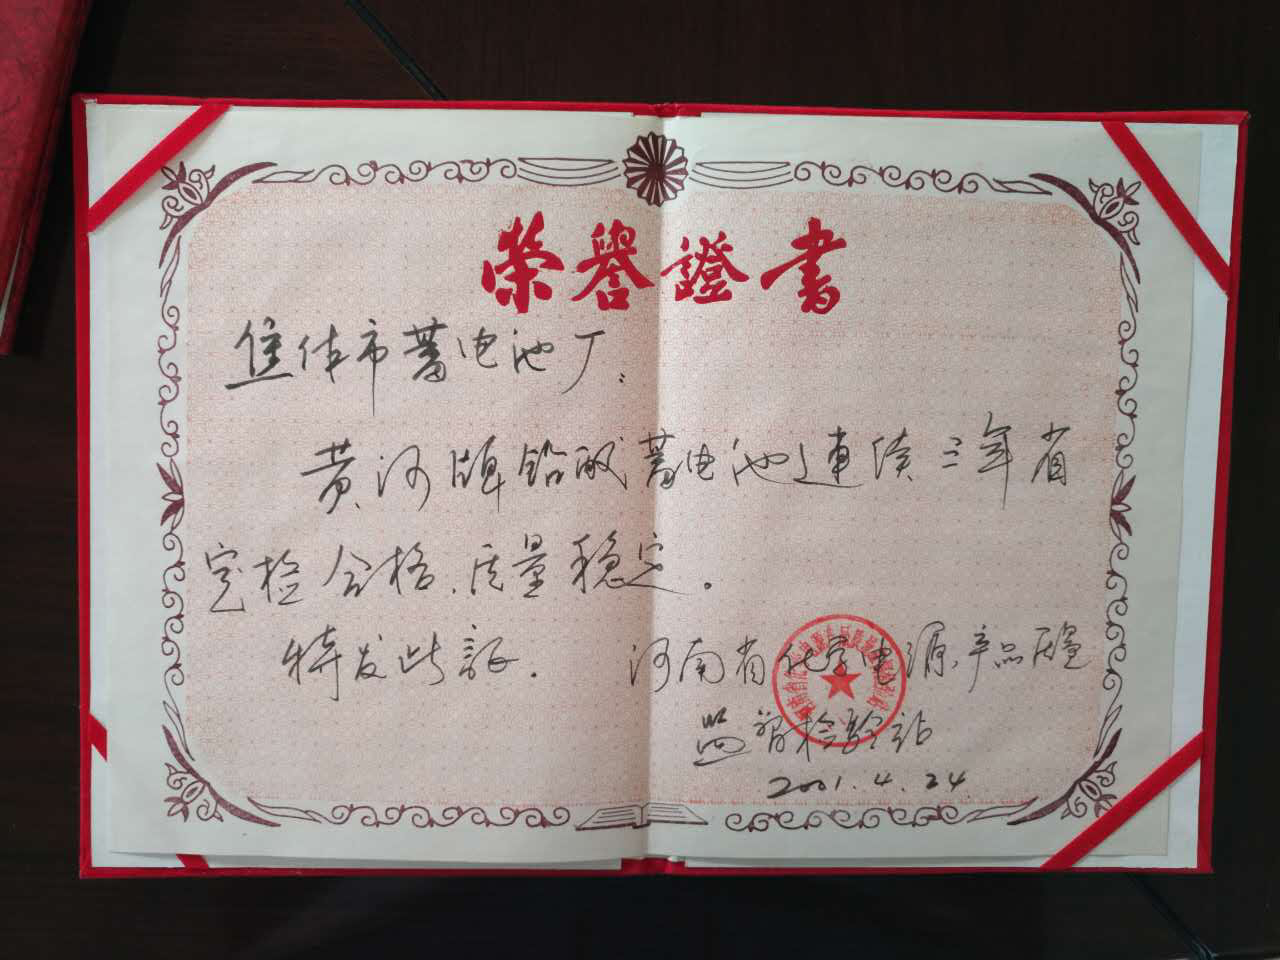 榮譽證書
焦作市蓄电池厂:
黄河牌铅酸蓄电池连续三年省
定检合格、质量稳定。
特发此証.
河南省化学电源产品质量
监督检验站
2001.4.24